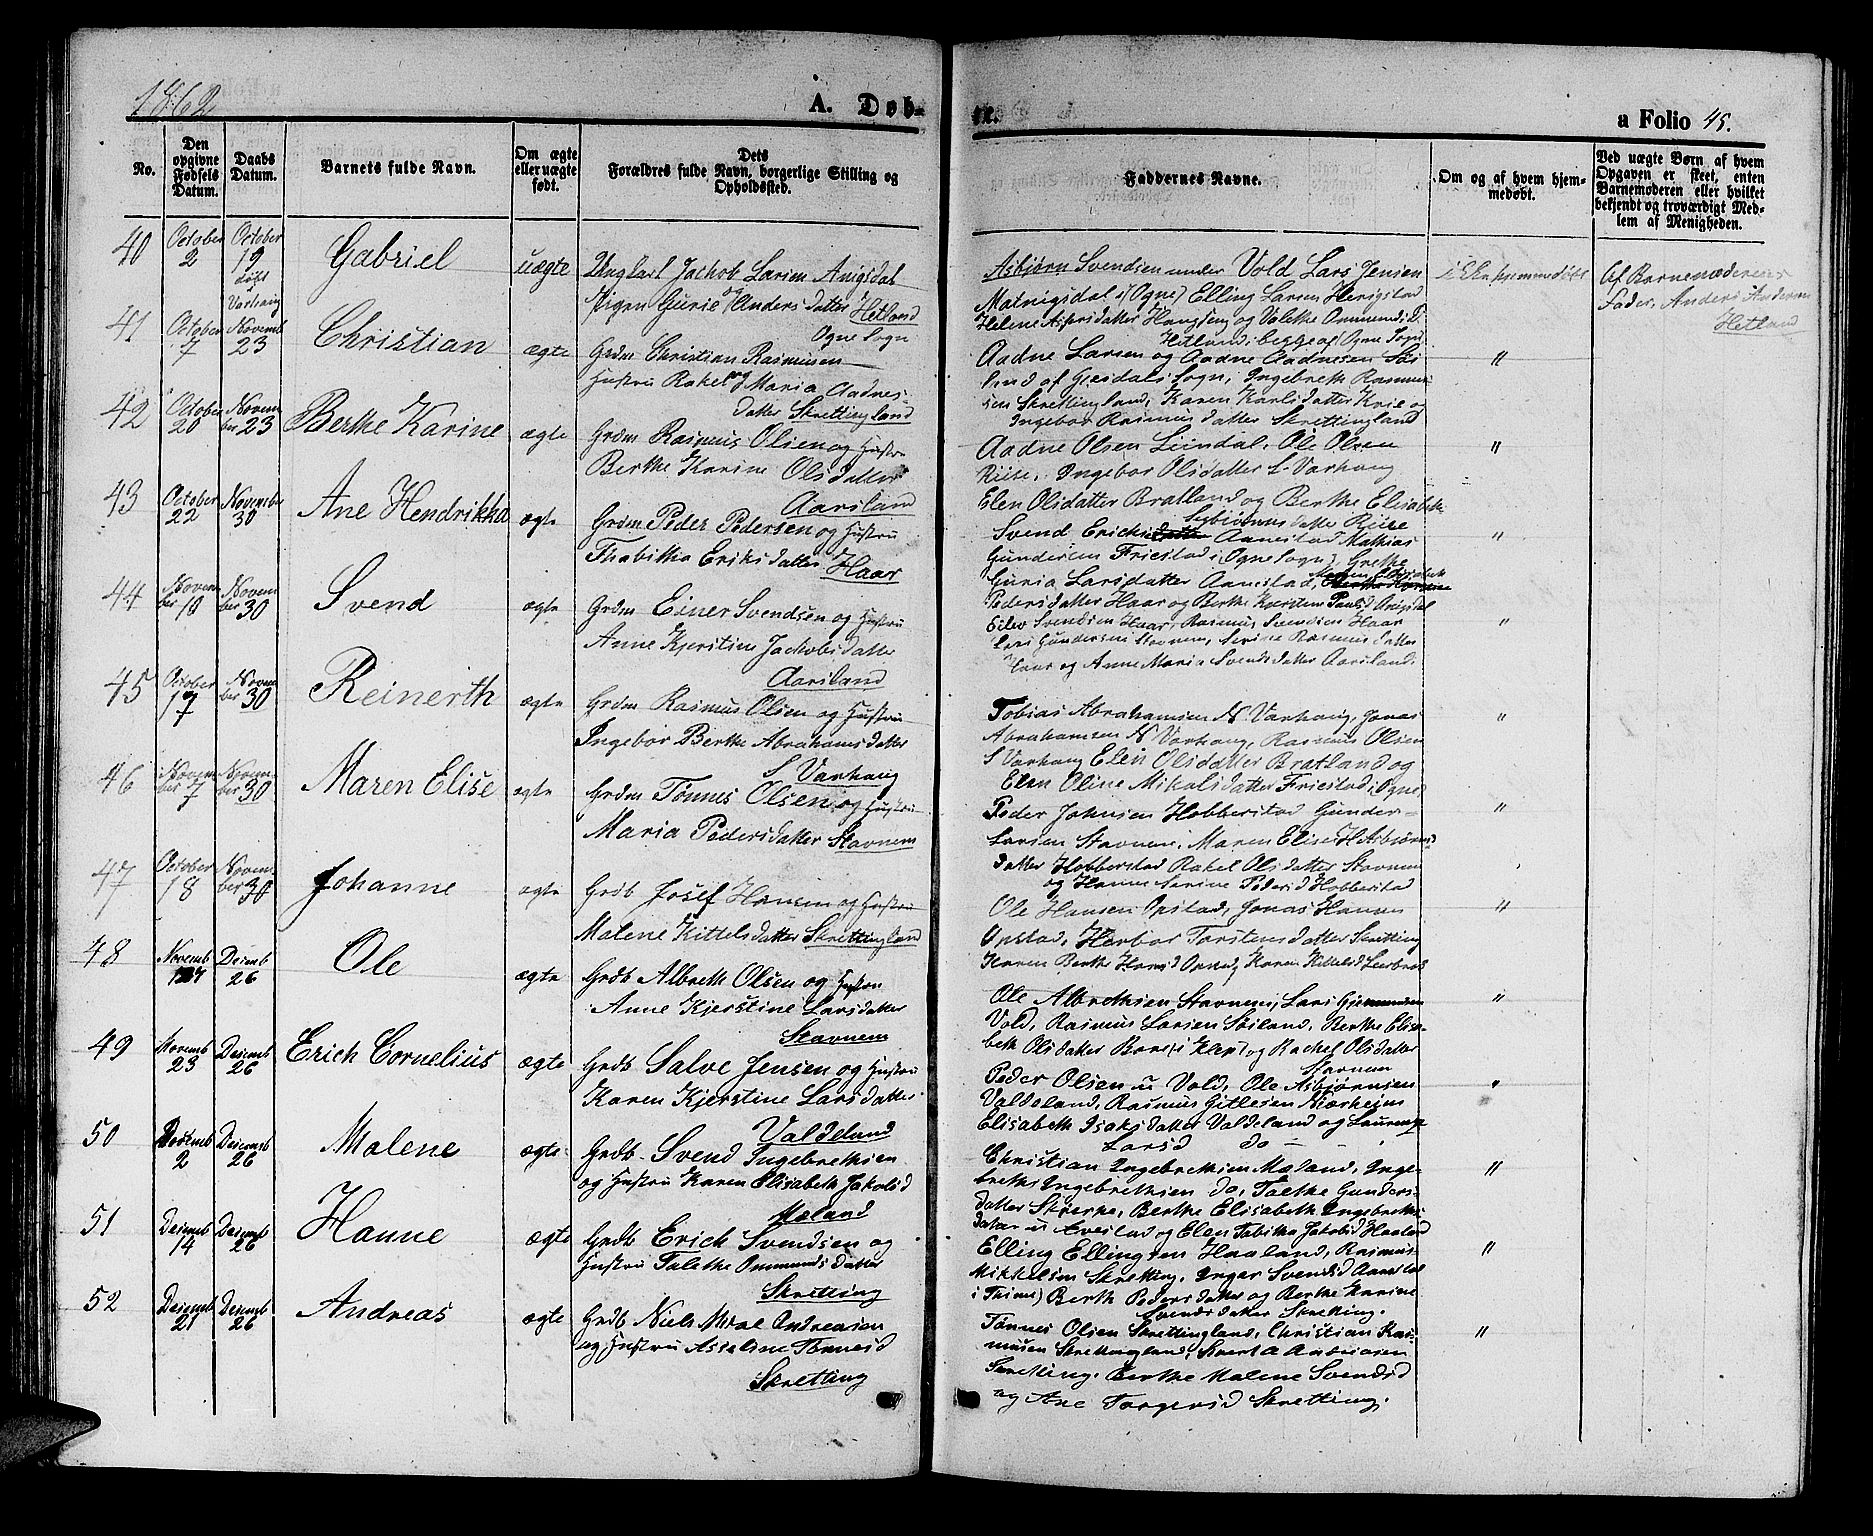 1862
A. Døb-
te.
a Folio 45.
No.
Den opgivne Fødsels Datum.
Daabs Datum.
Barnets fulde Navn.
Om ægte eller uægte født.
Dets Forældres fulde Navn, borgerlige Stilling og Opholdssted.
Faddernes Navne.
Om og af hvem hjemmedøbt.
Ved uægte Børn af hvem Opgaven er skeet, enten Barnemoderen eller hvilket bekjendt og troværdigt Medlem af Menigheden.
40 October 2 October 19 døbt i Varhaug Gabriel uægte Ungkarl Jachob Larsen Anigsdal
Pigen Gurie og Anders datter Hetland
Ogne Sogn
Asbjørn Svendsen under Vold Lars Jensen
Matnigsdal i (Ogne) Elling Larsen Herigstad
Hetland, begge af (Ogne Sogn)
Af Barnemoderens
Fader, Anders Andersen
Hetland
41 October 7 Novemb 23 Christian ægte Grdm Christian Rasmusen
Hustru Rakel og Maria Aadnes
datter Skrettingland
Aadne Larsen og Aadne Aadnesen
lund af Gjesdals Sogn, Ingebreth Rasmu
sen Skrettingland, Karen Karlsdatter
Ingebor Rasmus datter Skrettingland
"
42 October 20 November 23 Berthe Karine ægte Grdm Rasmus Olsen og Hustru
Berthe Karine Olsdatter
Aarsland
Aadne Olsen Lindal, Ole Olsen
Riise, Ingebor Olsdatter S. Varhaug
Elen Olsdatter Bratland og Berthe Elisabeth
datter Riise
"
43 October 22 November 30 Ane Hendrikka ægte Grdm Peder Pedersen og Hustru
Thabitha Eriksdatter Haar
Svend Ericks Aanestad Mathias
Gundersen Friestad i (Ogne Sogn), Grethe
Guria Larsdatter Aanestad,
Pedersdatter Haar og Berthe Kjersten
"
44 November 10 November 30 Svend ægte Grdm Einer Svendsen og Hustru
Anne Kjerstine Jachobsdatter
Aarsland
Eilev Svendsen Haar, Rasmus Svendsen Haar
Lars Gundersen Stavnem, Serine Rasmus datter
Haar og Anne Maria Svendsdatter Aarsland.
"
45 October 17 November 30 Reinerth ægte Grdm Rasmus Olsen og Hustru
Ingebor Berthe Abrahams datter
S Varhaug
Tobias Abrahamsen N. Varhaug, Jonas
Abrahamsen N Varhaug, Rasmus Olsen
S Varhaug Elen Olsdatter Bratland og
Elen Oline Mikalsdatter Friestad i Ogne
"
46 November 7 November 30 Maren Elise ægte Grdm Tønnes Olsen og Hustru
Maria Pedersdatter Stavnem
Peder Johnsen Hobberstad Gunder
Larsen Stavnem, Maren Elise H Asbjørns
datter Hobberstad Rakel Ols datter Stavnem
og Hanne Serine Peders d Hobberstad
"
47 October 18 November 30 Johanne ægte Grdb Josef Hansen og Hustru
Malene Kittelsdatter Skrettingland
Ole Hansen Opstad, Jonas Hansen
Opstad, Herbor Torstensdatter Skretting
Karen Berthe Hansd Opstad, Karen Kittelsd
"
48 Novemb Desemb 26 Ole ægte Grdb Albreth Olsen og Hustru
Anne Kjerstine Larsdatter
Stavnem
Ole Albrethsen Stavnem, Lars Gjermundsen
Vold, Rasmus Larsen Søiland, Berthe Elisa
beth Olsdatter Bore (i Klep) og Rachel Olsdatter
Stavnem
"
49 Novemb 23 Desemb 26 Erich Cornelius ægte Grdb Salve Jensen og Hustru
Karen Kjerstine Larsdatter
Valdeland
Peder Olsen u Vold, Ole Asbjørnsen
Valdeland, Rasmus Gitlesen Nærheim
Elisabeth Isaksdatter Valdeland og
Larsd do
"
50 Desemb 2 Desemb 26 Malene ægte Grdb Svend Ingebrethsen
og Hustru Karen Elisabeth Jakobsd
Mæland
Christian Ingebrethsen Mæland, Inge-
breth Ingebrethsen do, Talthe Gunders-
datter Skjerpe, Berthe Elisabeth Ingebreths
datter u og Elen Tabitha Jakobsd Haaland
"
51 Desemb 14 Desemb 26 Hanne ægte Grdb Erich Svendsen og
Hustru Talethe Ommunds datter
Skretting
Elling Ellingsen Haaland, Rasmus
Mikkelsen Skretting, Inger Svendsd
i Thime) Berth Pedersdatter og Berthe Karine
Svendsdatter Skretting.
"
52 Desemb 21 Desemb 26 Andreas ægte Grdb Niels Andreasen
og Hustru Asseline Tønnesd
Skretting
Tønnes Olsen Skrettingland, Christian Ras-
musen Skrettingland, Andreasen
Skretting, Berthe Malene Svendsd
og Ane Torgersd Skretting.
"